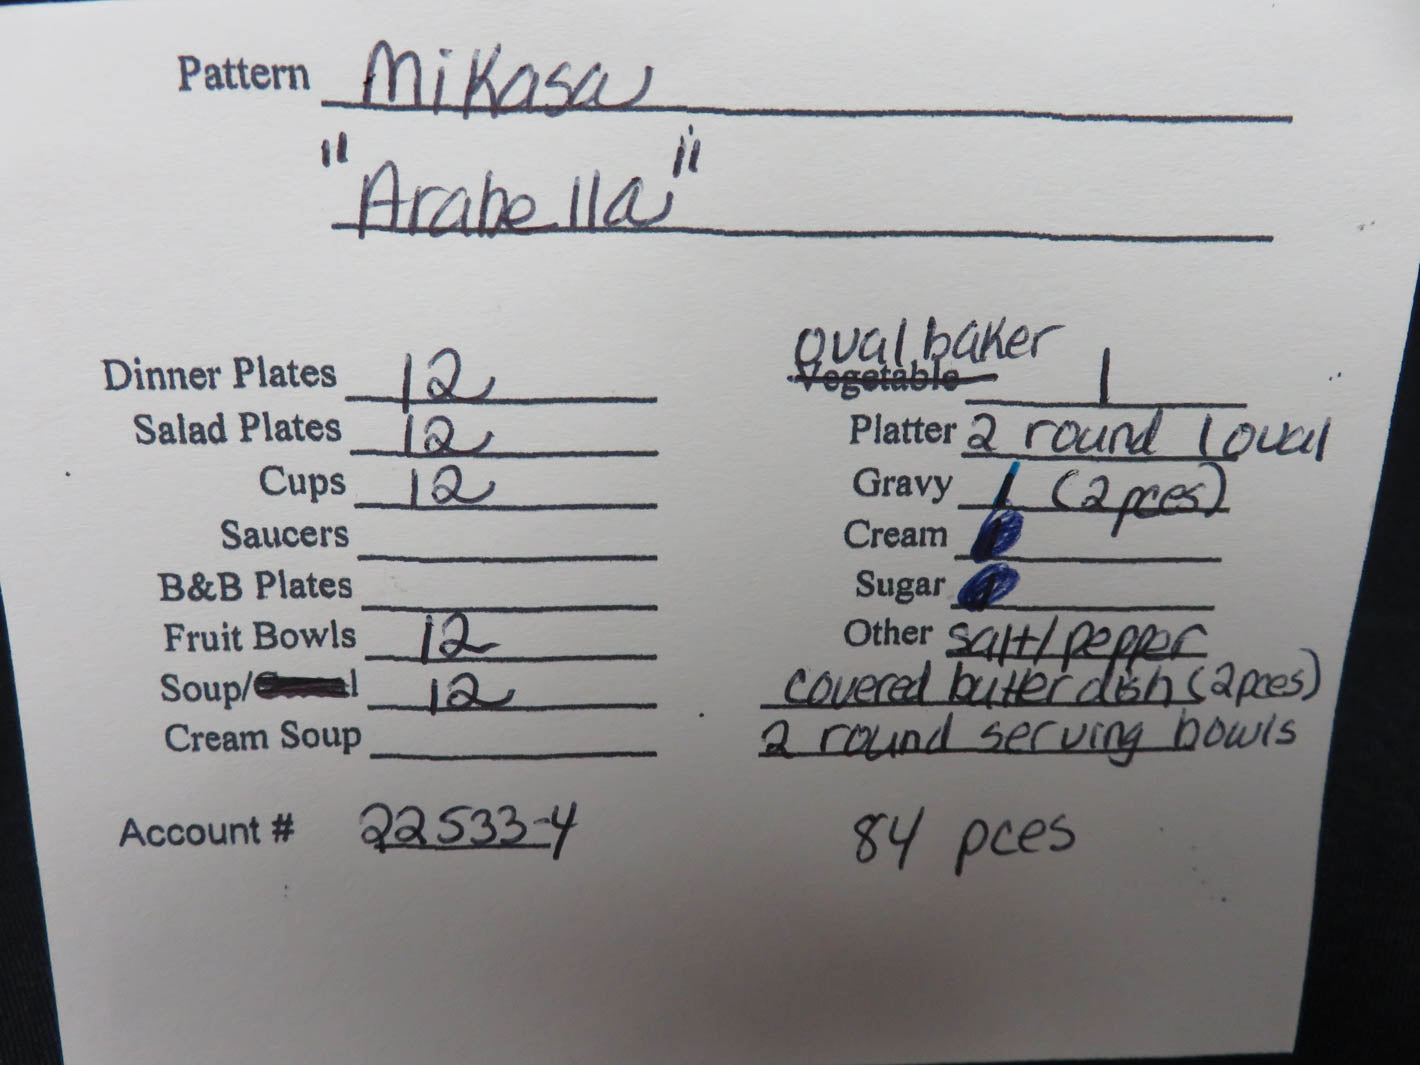 Pattern Mikasa
"Arabella"
oval baker
Dinner Plates 12 Vegetable 1
Salad Plates 12 Platter 2 round 1 oval
Cups 12 Gravy 1 (2 pces)
Saucers Cream
B&B Plates Sugar
Fruit Bowls 12 Other salt/pepper
Soup/ 12 covered butter dish (2 pces)
Cream Soup 2 round serving bowls
Account # 22533-4 84 pces